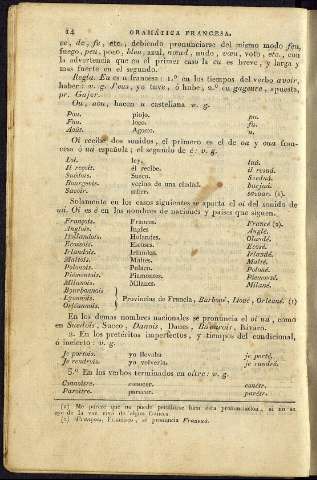 14 GRAMÁTICA FRANCESA.
ce, de, fe, etc., debiendo pronunciarse del mismo modo feu,
fuego, peu, poco, bleu, azul, nœud, nudo, vœu, voto, etc., con
la advertencia que en el primer caso la eu es breve, y larga y
mas fuerte en el segundo.
Regla. Eu es u francesa: 1.º en los tiempos del verbo avoir,
haber: v. g. J'eus, yo tuve, ó hube, 2.º en gageure, apuesta,
pr. Gajur.
Ou, aou, hacen u castellana v. g.
Pou. piojo. pu.
Fou. loco. fu.
Août. Agosto. u.
Oi recibe dos sonidos, el primero es el de oa y oua francesa
ó ua española; el segundo de é: v. g.
Loi. ley. luá.
Il reçoit. él recibe. il resuá.
Suédois. Sueco. Sueduá.
Bourgeois. vecino de una ciudad. burjuá.
Savoir. saber. savuar. (1).
Solamente en los casos siguientes se aparta el oi del sonido de
uá. Oi es é en los nombres de naciones y paises que siguen.
François. Frances. Francé (2).
Anglois. Ingles Anglé.
Hollandois. Holandes. Olandé.
Ecossois. Escoses. Ecosé.
Irlandois. Irlandes. Irlandé.
Maltois. Maltes. Malté.
Polonois. Polaco. Poloné.
Piémontois. Piamontes. Piemonté.
Milanois. Milanes. Milané.
Bourbonnois
Lyonnois. Provincias de Francia, Burboné, Lioné, Orleané. (1)
Orléannois.
En los demas nombres nacionales se pronuncia el oi uá, como
en Suédois, Sueco, Danois, Danes, Bavarois, Bávaro.
2. En los pretéritos imperfectos, y tiempos del condicional,
ó incierto: v. g.
Je portois. yo llevaba je porté.
Je rendrois. yo volveria. je randré.
3.º En los verbos terminados en oître: v. g.
Connoître. conocer. conétr.
Paroître. parecer. parétr.
(1) Me parece que no puede percibirse bien esta pronunciacion, si no se
oye de la voz viva de algun frances.
(2) François, Francisco, se pronuncia Fransuá.